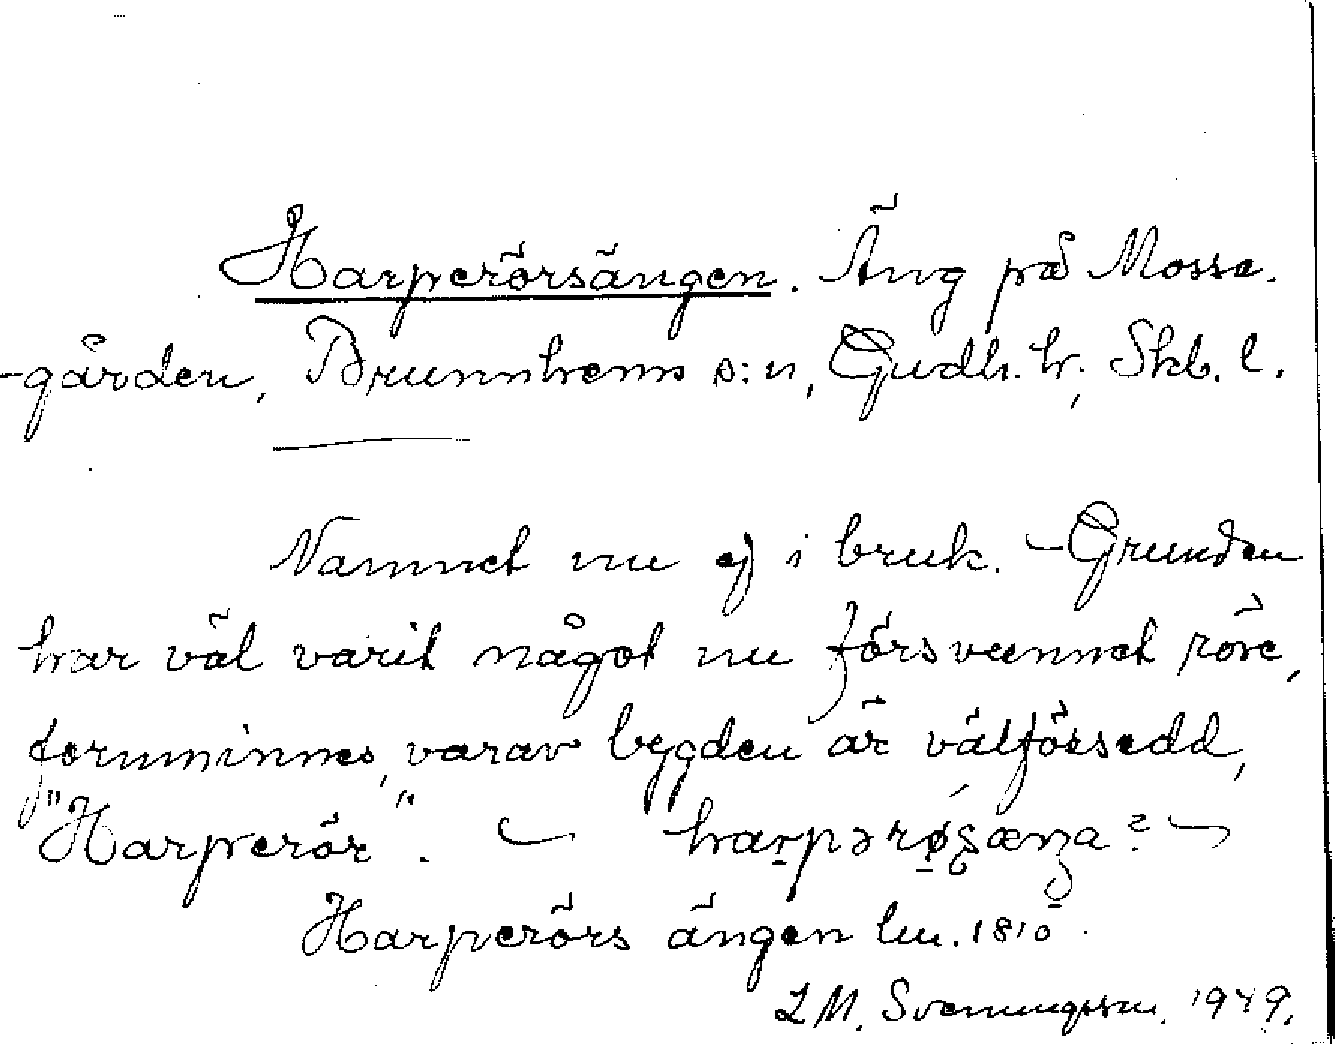 Harperörsängen. Äng på Mosse-
-gården, Brunnhems s:n, Gudh. h., Skb. l.
Namnet nu ej i bruk. – Grunden
har väl varit något nu försvunnet röre,
fornminnes, varav bygden är välförsedd,
"Harperör". – –
Harperörs ängen lm. 1810.
L M. Svenungsson. 1949.